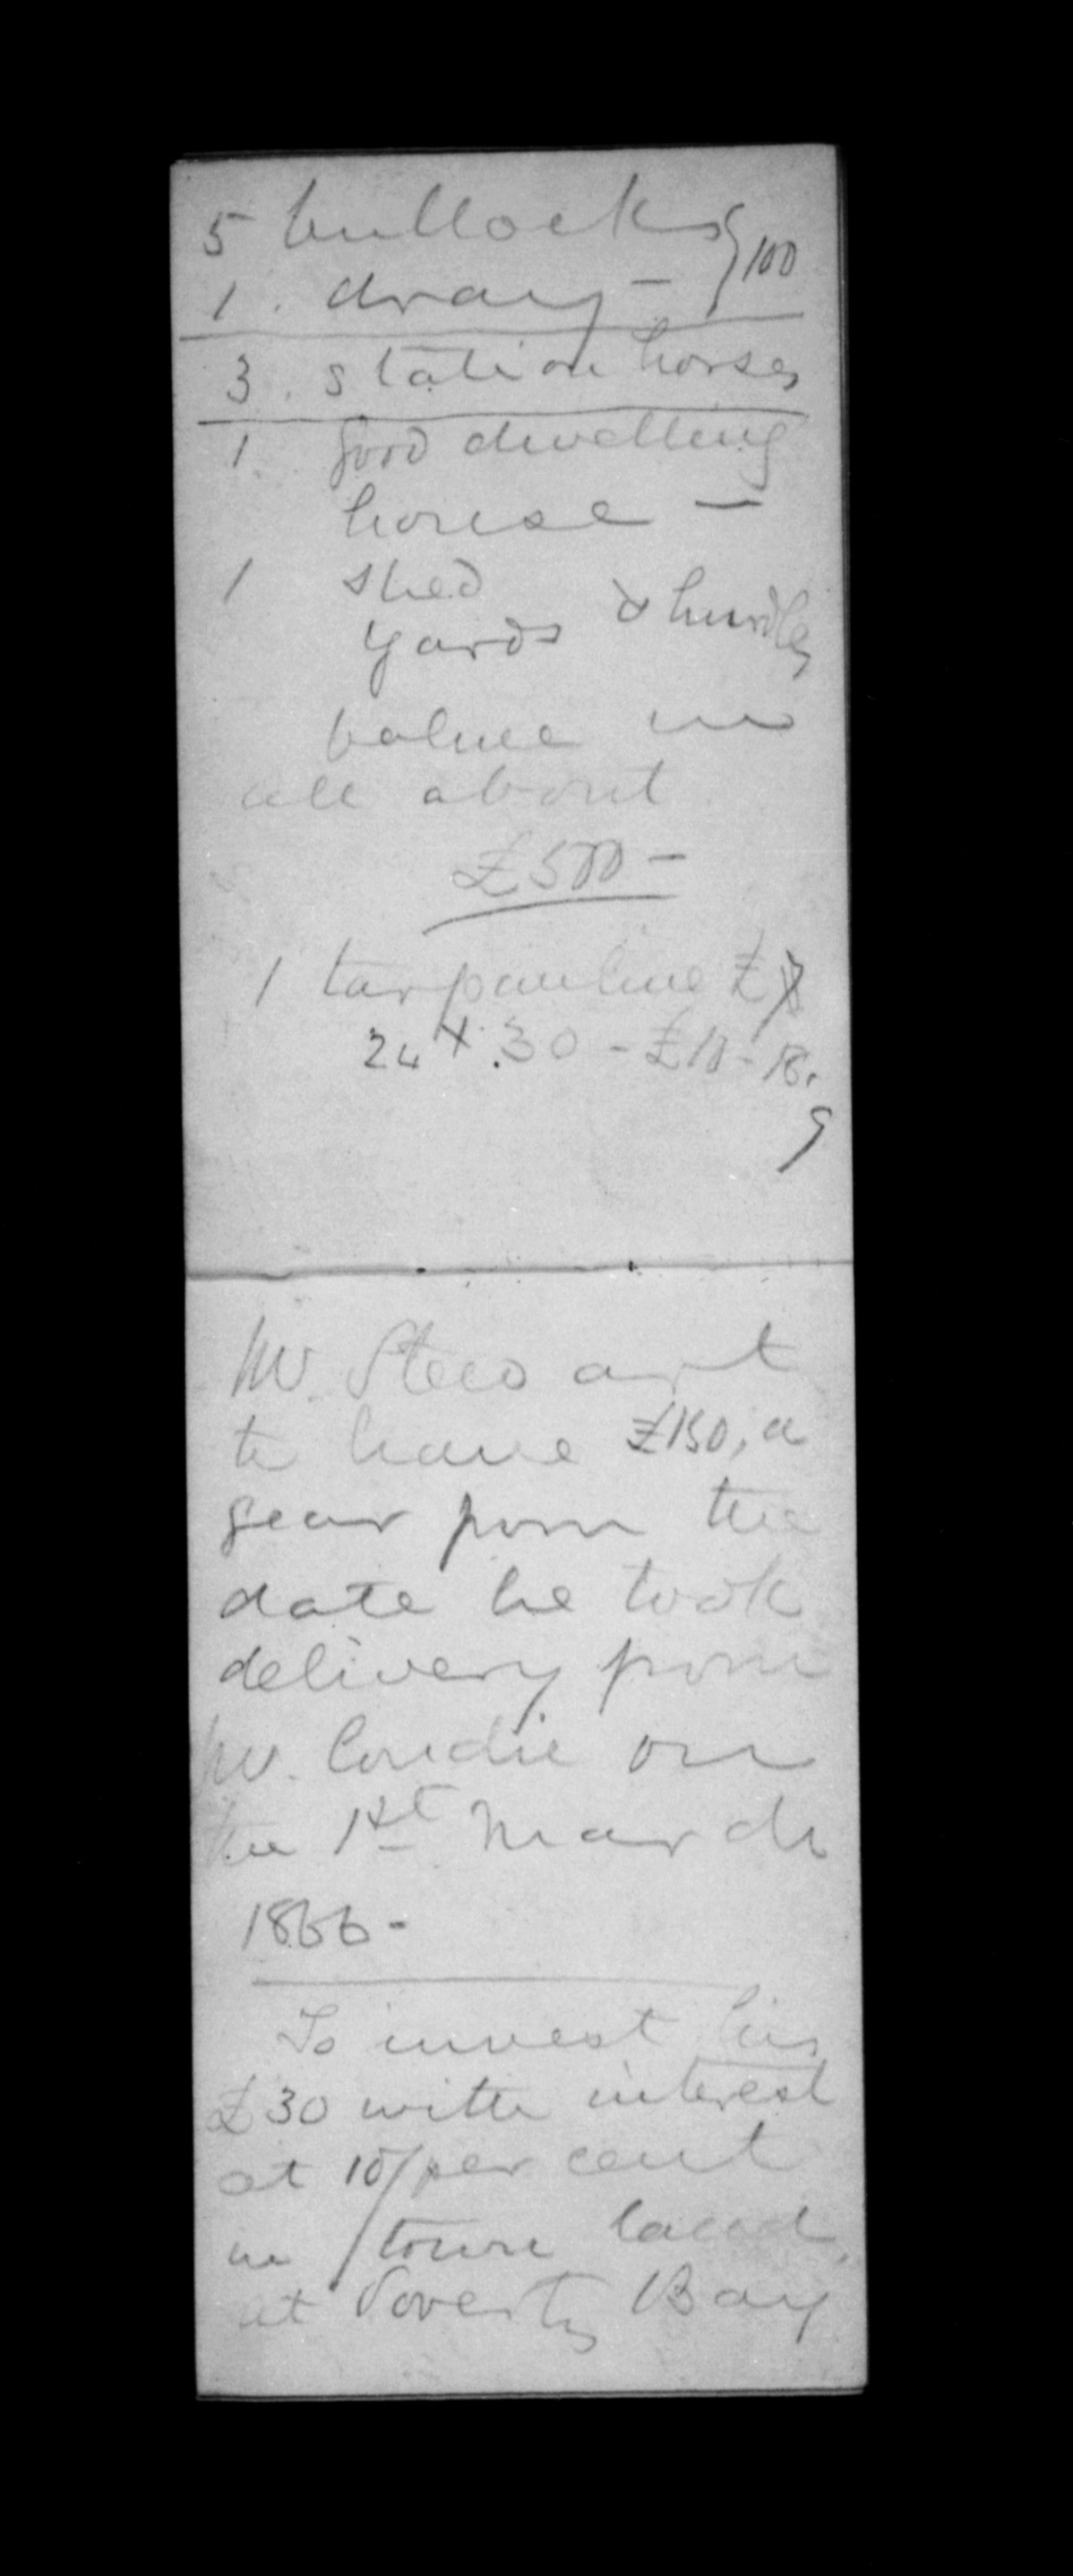 5 bullocks } 100
1. dray -
3. station horses
1 good dwelling
house -
1 shed
yards & hurdles
value in
all about
£500 -
1 tarpauline £
24 x 30 - £10 - 18.
9
Mr. Stewart
to have £150, a
year from the
date he took
delivery from
Mr. Condie on
the 1st March
1866 -
To invest his
£30 with interest
at 10/per cent
in town land
at Poverty Bay